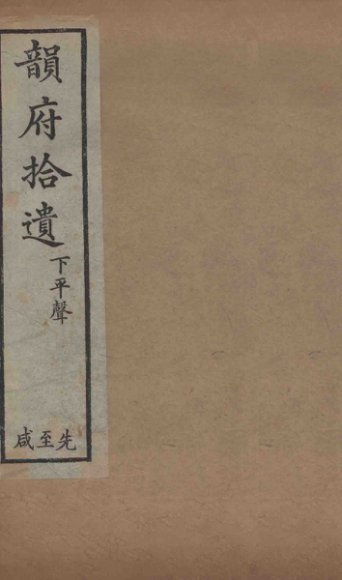 韻府拾遺
下平聲
先至咸